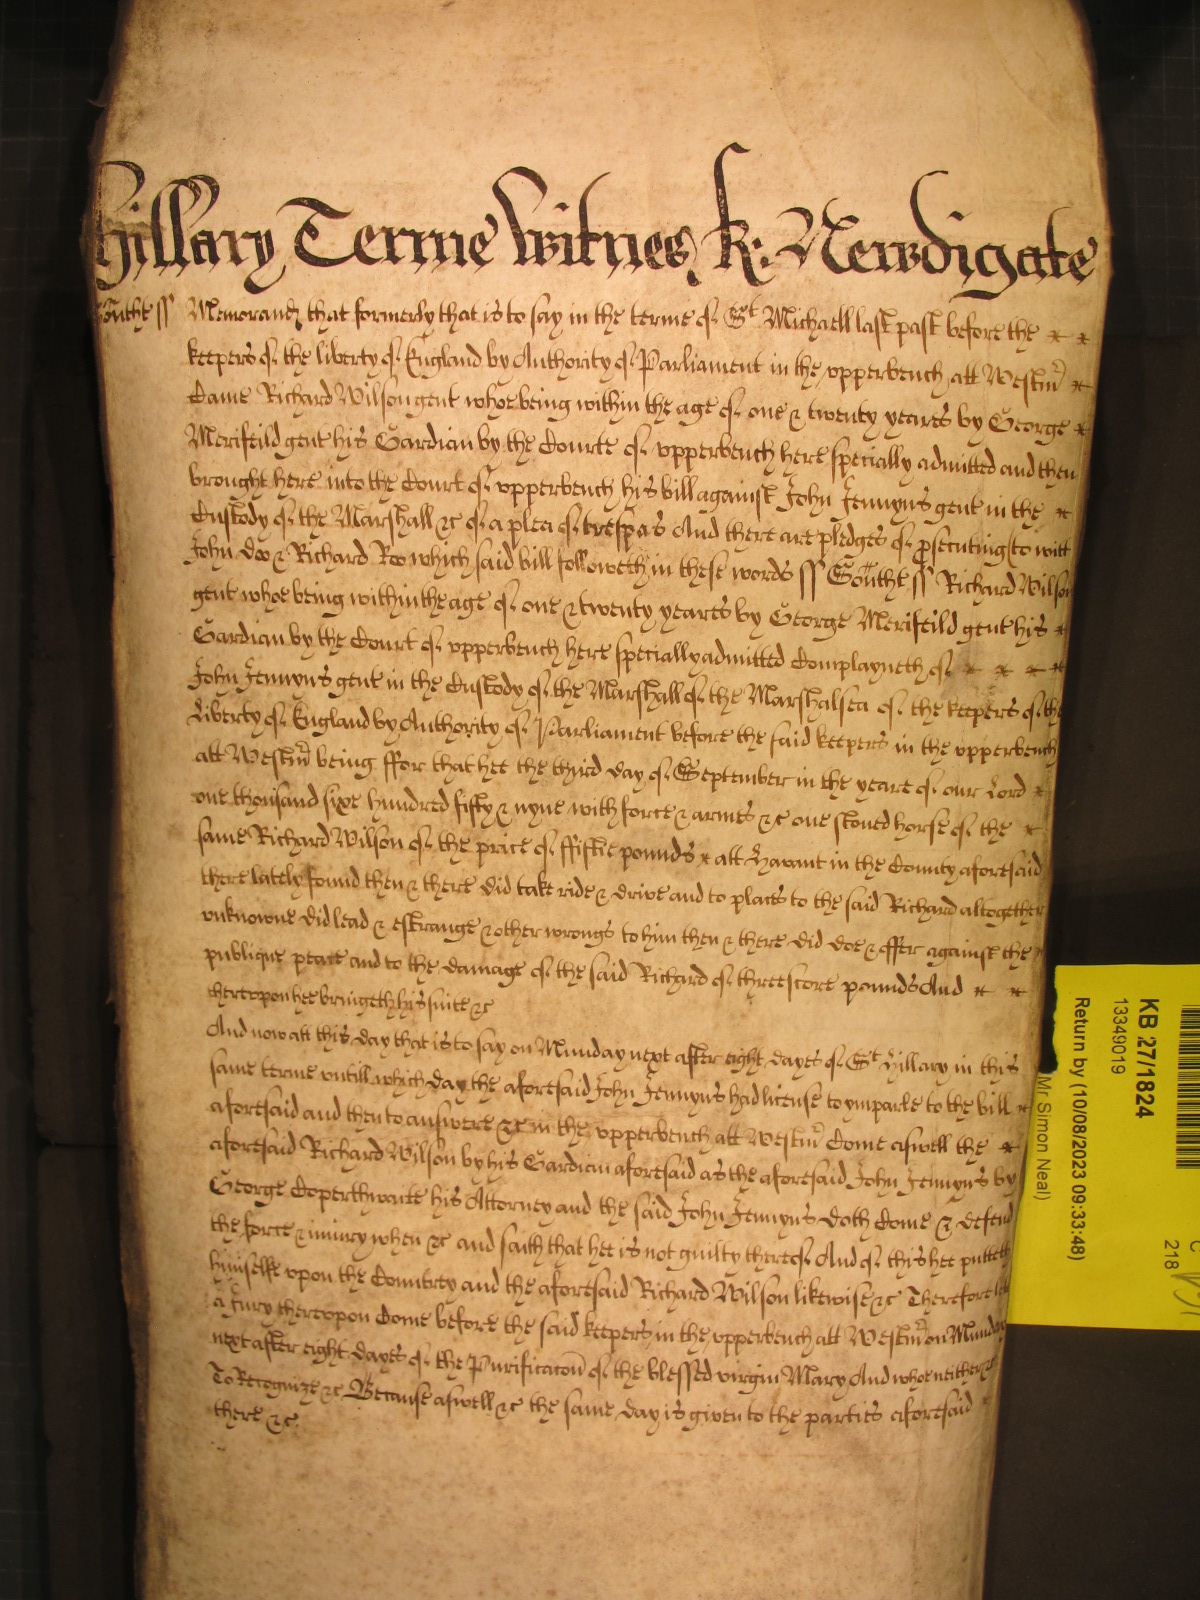 Hillary Terme Witnes R: Newdigate
Southt ss Memorand that formerly that is to say in the terme of St Michaell last past before the
keepers of the liberty of England by Authority of Parliament in the upperbench att Westmr
Came Richard Wilson gent whoe being within the age of one & twenty yeares by George
Merifeild gent his Gardian by the Courte of upperbench here specially admitted and then
brought here into the Court of upperbench his bill against John Jennyns gent in the
Custody of the Marshall &c of a plea of trespas And there are pledges of prosecuting (to witt
John Doo & Richard Roo which said bill followeth in these words ss Southt ss Richard Wilson
gent whoe being within the age of one & twenty yeares by George Merifeild gent his
Gardian by the Court of upperbench here specially admitted Complayneth of
John Jennyns gent in the Custody of the Marshall of the Marshalsea of the keepers of the
Liberty of England by Authority of Parliament before the said keepers in the upperbench
att Westmr being ffor that hee the third day of September in the yeare of our Lord
one thousand sixe hundred fifty & nyne with force & armes &c one stoned horse of the
same Richard Wilson of the price of ffiftie pounds att Havant in the County aforesaid
there lately found then & there did take ride & drive and to places to the said Richard altogether
unknowne did lead & estrange & other wrongs to him then & there did doe & offer against the
publique peace and to the damage of the said Richard of threescore pounds And
thereupon hee bringeth his suite &c
And now att this day that is to say on Munday next after eight dayes of St Hillary in this
same terme untill which day the aforesaid John Jennyns had license to imparle to the bill
aforesaid and then to answere &c in the upperbench att Westmr Come aswell the
aforesaid Richard Wilson by his Gardian aforesaid as the aforesaid John Jennyns by
George Coperthwaite his Attorney and the said John Jennyns doth Come & defend
the force & iniury when &c and saith that hee is not guilty thereof And of this hee putteth
himselfe upon the Countrty and the aforesaid Richard Wilson likewise &c Therefore lett
a Jury thereupon Come before the said keepers in the upperbench att Westmr on Munday
next after eight dayes of the Purificacon of the blessed virgin Mary And whoe neither &c
To Recognize &c Because aswell &c the same day is given to the parties aforesaid
there &c
KB 27/1824
13349019
Return by (10/08/2023 09:33:48)
Mr Simon Neal)
218